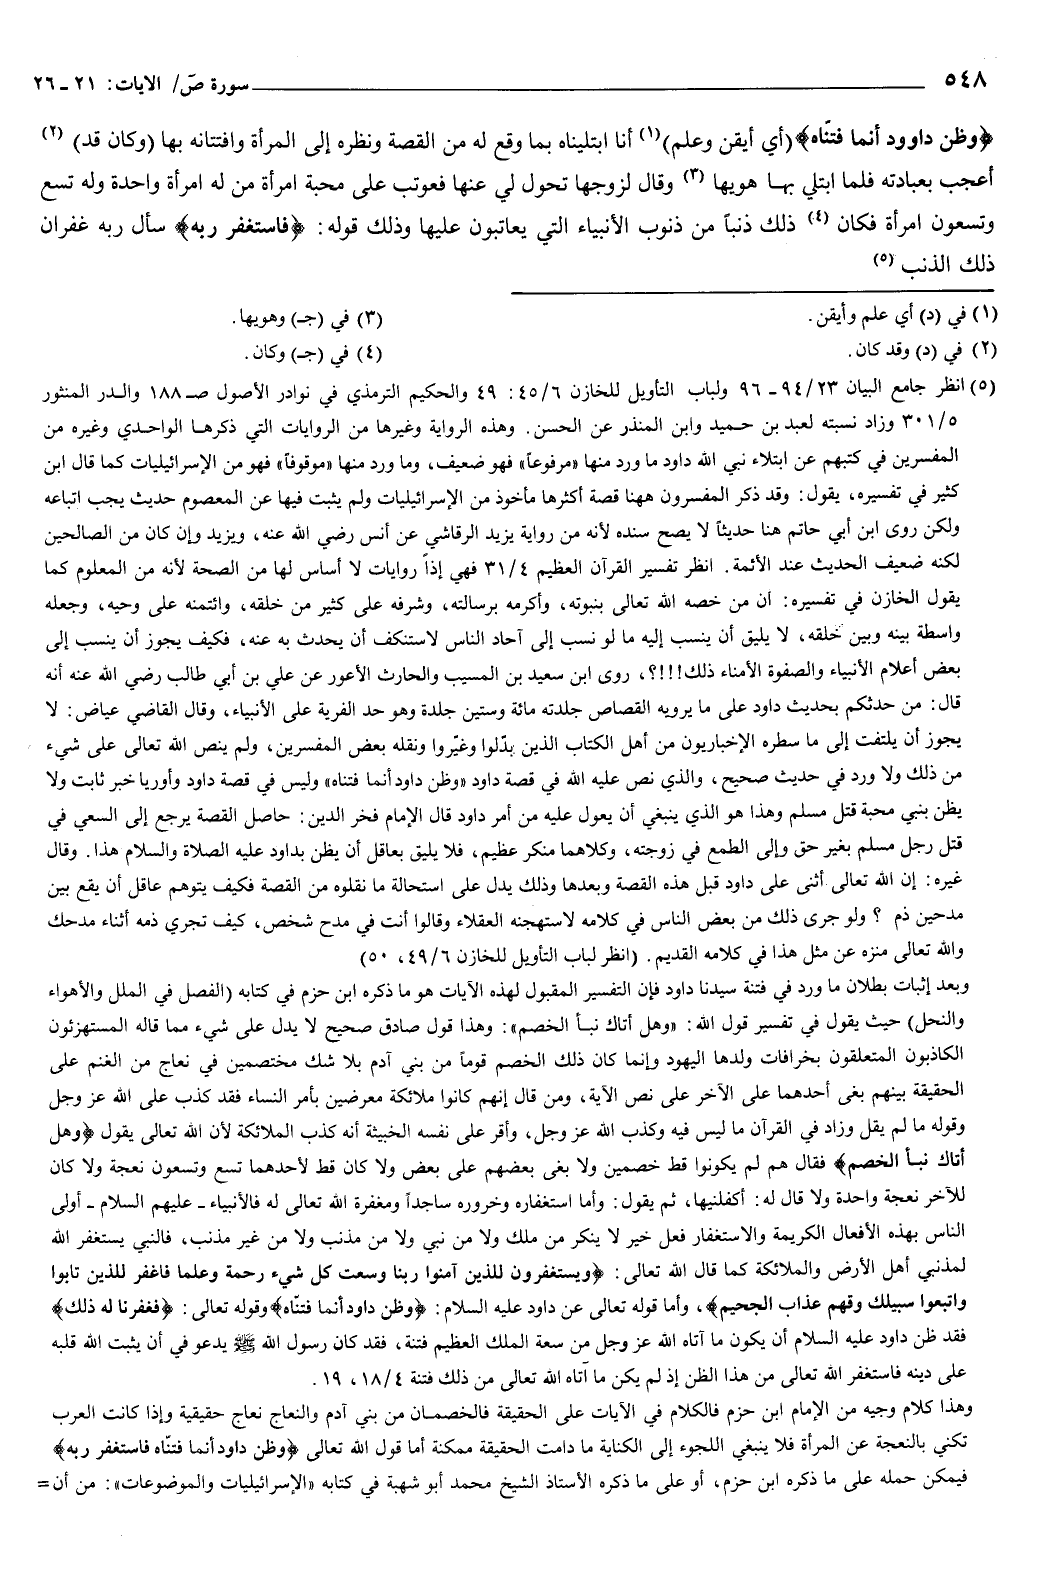 ٥٤٨ سورة صٓ/ الايات: ٢١ ـ ٢٦
﴿وظن داوود أنما فتنّاه﴾(أي أيقن وعلم)(١) أنا ابتليناه بما وقع له من القصة ونظره إلى المرأة وافتتانه بها (وكان قد) (٢)
أعجب بعبادته فلما ابتلي بها هويها (٣) وقال لزوجها تحول لي عنها فعوتب على محبة امرأة من له امرأة واحدة وله تسع
وتسعون امرأة فكان (٤) ذلك ذنباً من ذنوب الأنبياء التي يعاتبون عليها وذلك قوله: ﴿فاستغفر ربه﴾ سأل ربه غفران
ذلك الذنب (٥)
(١) في (د) أي علم وأيقن. (٣) في (جـ) وهويها.
(٢) في (د) وقد كان. (٤) في (جـ) وكان.
(٥) انظر جامع البيان ٩٤/٢٣ ـ ٩٦ ولباب التأويل للخازن ٤٥/٦: ٤٩ والحكيم الترمذي في نوادر الأصول صـ١٨٨ والدر المنثور
٣٠١/٥ وزاد نسبته لعبد بن حميد وابن المنذر عن الحسن. وهذه الرواية وغيرها من الروايات التي ذكرها الواحدي وغيره من
المفسرين في كتبهم عن ابتلاء نبي الله داود ما ورد منها «مرفوعاً» فهو ضعيف، وما ورد منها «موقوفاً» فهو من الإسرائيليات كما قال ابن
كثير في تفسيره، يقول: وقد ذكر المفسرون ههنا قصة أكثرها مأخوذ من الإسرائيليات ولم يثبت فيها عن المعصوم حديث يجب اتباعه
ولكن روى ابن أبي حاتم هنا حديثاً لا يصح سنده لأنه من رواية يزيد الرقاشي عن أنس رضي الله عنه، ويزيد وإن كان من الصالحين
لكنه ضعيف الحديث عند الأئمة. انظر تفسير القرآن العظيم ٣١/٤ فهي إذاً روايات لا أساس لها من الصحة لأنه من المعلوم كما
يقول الخازن في تفسيره: أن من خصه الله تعالى بنبوته، وأكرمه برسالته، وشرفه على كثير من خلقه، وائتمنه على وحيه، وجعله
واسطة بينه وبين خلقه، لا يليق أن ينسب إليه ما لو نسب إلى آحاد الناس لاستنكف أن يحدث به عنه، فكيف يجوز أن ينسب إلى
بعض أعلام الأنبياء والصفوة الأمناء ذلك!!!؟، روى ابن سعيد بن المسيب والحارث الأعور عن علي بن أبي طالب رضي الله عنه أنه
قال: من حدثكم بحديث داود على ما يرويه القصاص جلدته مائة وستين جلدة وهو حد الفرية على الأنبياء، وقال القاضي عياض: لا
يجوز أن يلتفت إلى ما سطره الإخباريون من أهل الكتاب الذين بدّلوا وغيّروا ونقله بعض المفسرين، ولم ينص الله تعالى على شيء
من ذلك ولا ورد في حديث صحيح، والذي نص عليه الله في قصة داود «وظن داود أنما فتناه» وليس في قصة داود وأوريا خبر ثابت ولا
يظن بنبي محبة قتل مسلم وهذا هو الذي ينبغي أن يعول عليه من أمر داود قال الإمام فخر الدين: حاصل القصة يرجع إلى السعي في
قتل رجل مسلم بغير حق وإلى الطمع في زوجته، وكلاهما منكر عظيم، فلا يليق بعاقل أن يظن بداود عليه الصلاة والسلام هذا. وقال
غيره: إن الله تعالى أثنى على داود قبل هذه القصة وبعدها وذلك يدل على استحالة ما نقلوه من القصة فكيف يتوهم عاقل أن يقع بين
مدحين ذم ؟ ولو جرى ذلك من بعض الناس في كلامه لاستهجنه العقلاء وقالوا أنت في مدح شخص، كيف تجري ذمه أثناء مدحك
والله تعالى منزه عن مثل هذا في كلامه القديم. (انظر لباب التأويل للخازن ٤٩/٦، ٥٠)
وبعد إثبات بطلان ما ورد في فتنة سيدنا داود فإن التفسير المقبول لهذه الآيات هو ما ذكره ابن حزم في كتابه (الفصل في الملل والأهواء
والنحل) حيث يقول في تفسير قول الله: «وهل أتاك نبـأ الخصم»: وهذا قول صادق صحيح لا يدل على شيء مما قاله المستهزئون
الكاذبون المتعلقون بخرافات ولدها اليهود وإنما كان ذلك الخصم قوماً من بني آدم بلا شك مختصمين في نعاج من الغنم على
الحقيقة بينهم بغى أحدهما على الآخر على نص الآية، ومن قال إنهم كانوا ملائكة معرضين بأمر النساء فقد كذب على الله عز وجل
وقوله ما لم يقل وزاد في القرآن ما ليس فيه وكذب الله عز وجل، وأقر على نفسه الخبيثة أنه كذب الملائكة لأن الله تعالى يقول ﴿وهل
أتاك نبـأ الخصم﴾ فقال هم لم يكونوا قط خصمين ولا بغى بعضهم على بعض ولا كان قط لأحدهما تسع وتسعون نعجة ولا كان
للآخر نعجة واحدة ولا قال له: أكفلنيها، ثم يقول: وأما استغفاره وخروره ساجداً ومغفرة الله تعالى له فالأنبياء ـ عليهم السلام ـ أولى
الناس بهذه الأفعال الكريمة والاستغفار فعل خير لا ينكر من ملك ولا من نبي ولا من مذنب ولا من غير مذنب، فالنبي يستغفر الله
لمذنبي أهل الأرض والملائكة كما قال الله تعالى: ﴿ويستغفرون للذين آمنوا ربنا وسعت كل شيء رحمة وعلما فاغفر للذين تابوا
واتبعوا سبيلك وقهم عذاب الجحيم﴾، وأما قوله تعالى عن داود عليه السلام: ﴿وظن داود أنما فتنّاه﴾وقوله تعالى: ﴿فغفرنا له ذلك﴾
فقد ظن داود عليه السلام أن يكون ما آتاه الله عز وجل من سعة الملك العظيم فتنة، فقد كان رسول الله ﷺ يدعو في أن يثبت الله قلبه
على دينه فاستغفر الله تعالى من هذا الظن إذ لم يكن ما آتاه الله تعالى من ذلك فتنة ١٨/٤، ١٩ .
وهذا كلام وجيه من الإمام ابن حزم فالكلام في الآيات على الحقيقة فالخصمان من بني آدم والنعاج نعاج حقيقية وإذا كانت العرب
تكني بالنعجة عن المرأة فلا ينبغي اللجوء إلى الكناية ما دامت الحقيقة ممكنة أما قول الله تعالى ﴿وظن داود أنما فتنّاه فاستغفر ربه﴾
فيمكن حمله على ما ذكره ابن حزم، أو على ما ذكره الأستاذ الشيخ محمد أبو شهبة في كتابه «الإسرائيليات والموضوعات»: من أن=